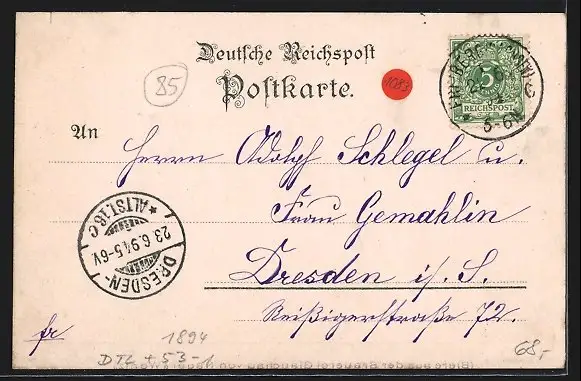 Deutsche Reichspost
Postkarte.
85
1083
5
REICHSPOST
5-6N
An
Herrn Adolph Schlegel u.
Frau Gemahlin
Dresden i/S.
Reißigerstraße 72.
* ALTST.16 c
23 6.94 5-6V
DRESDEN-
fr
1894
DTL + 53-1
68,-